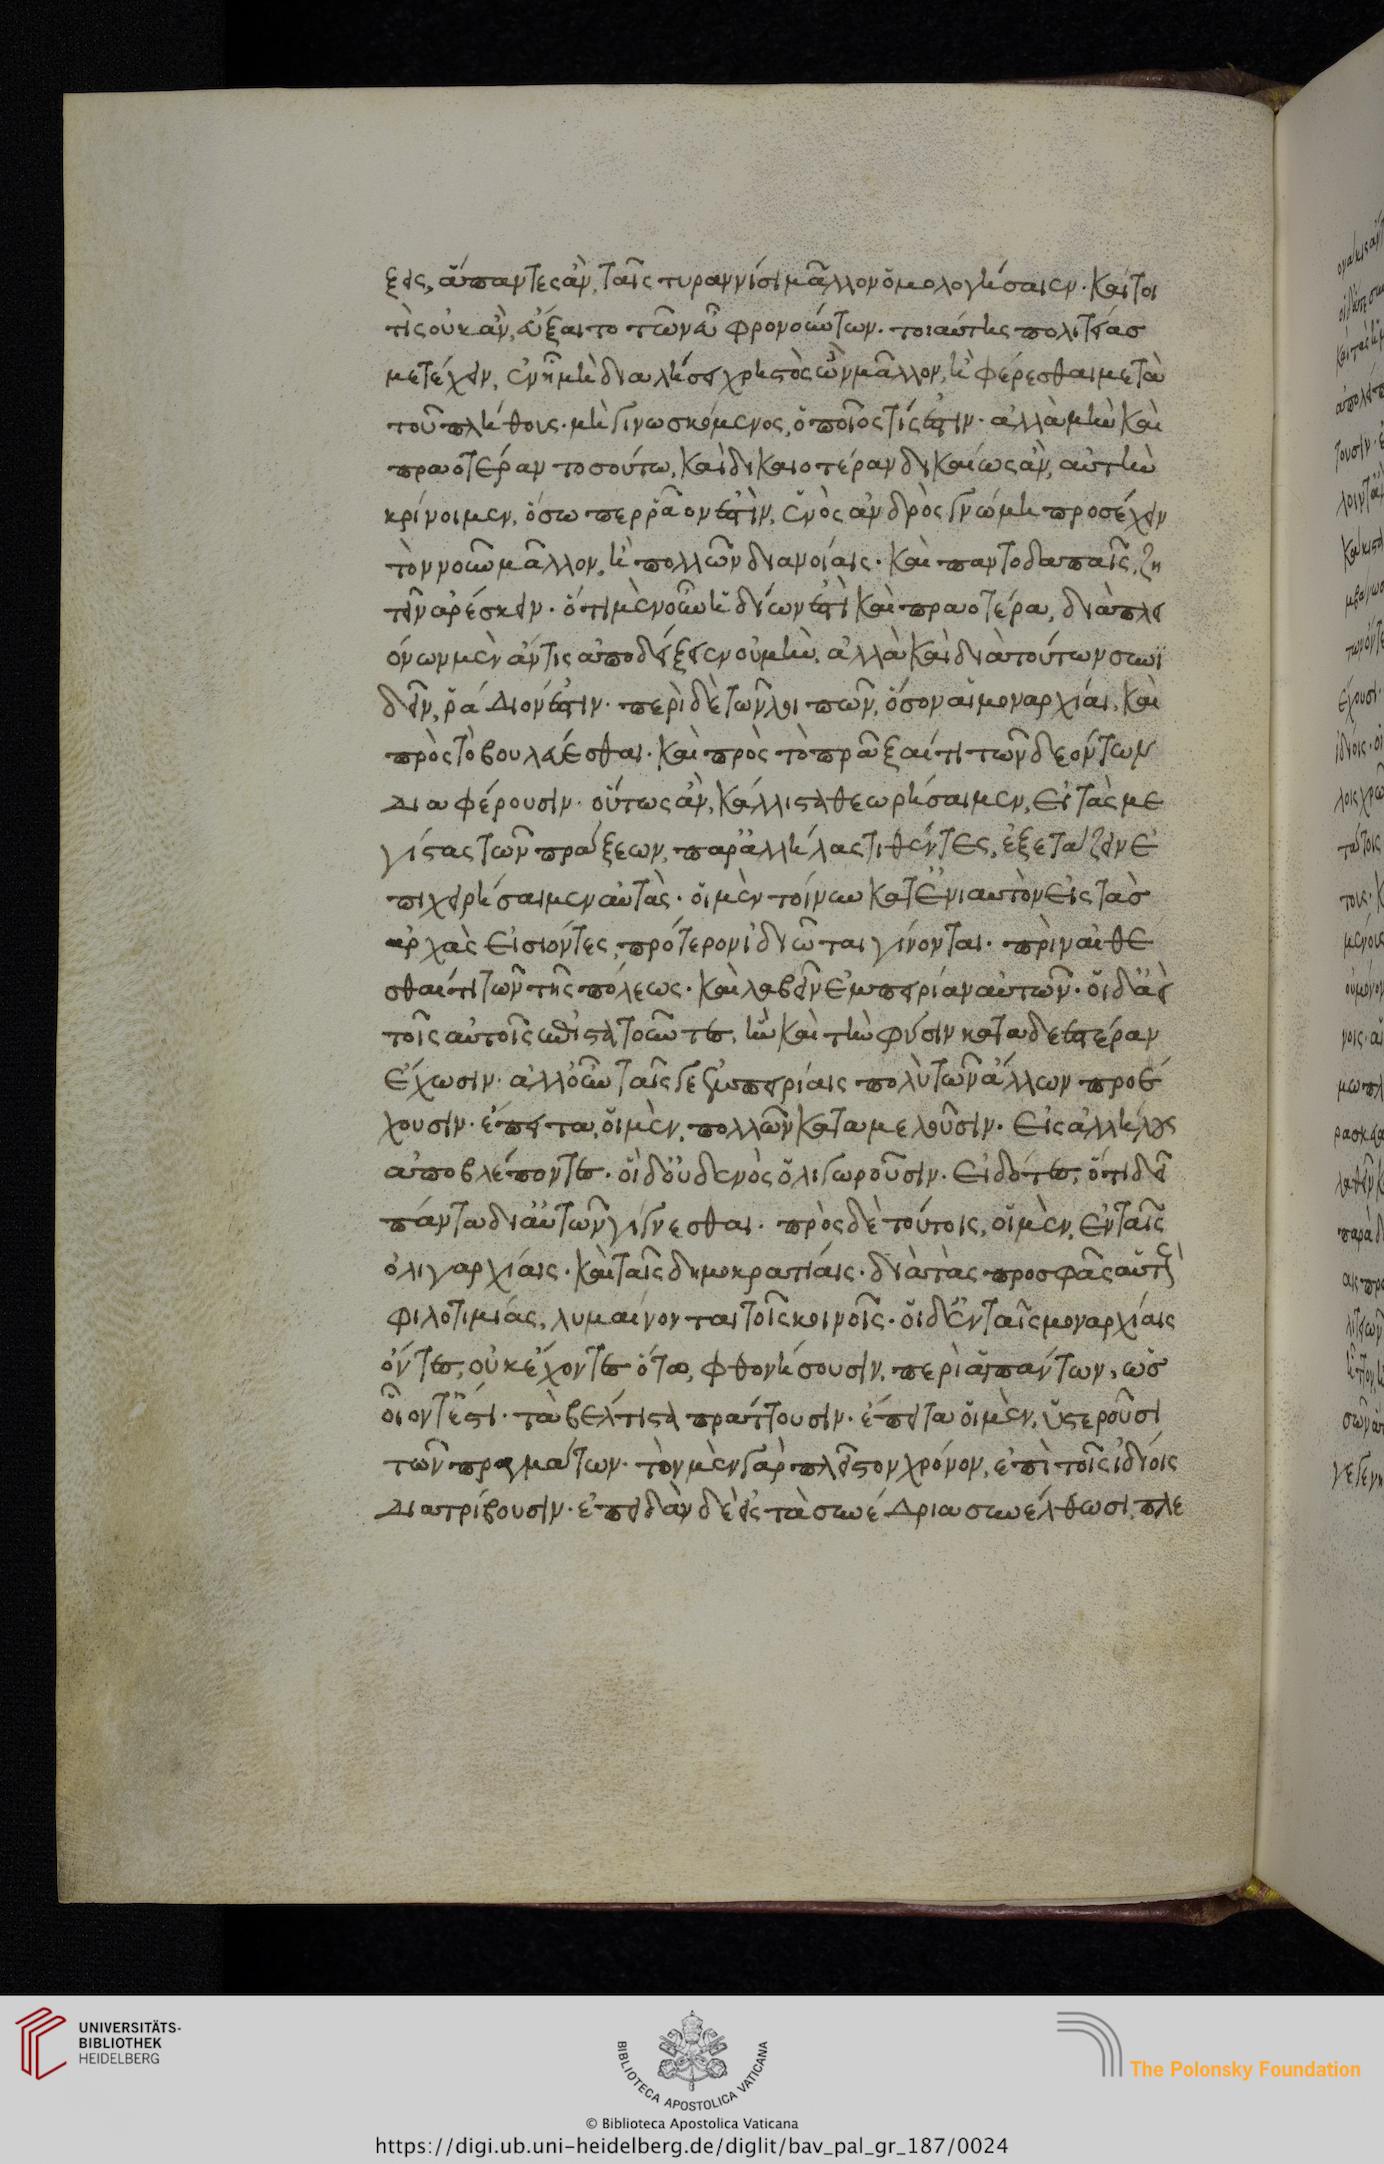 ξεις, ἅπαντες ἂν, ταῖς τυραννίσι μᾶλλον ὁμολογήσαιεν. καίτοι
τὶς οὐκ ἂν, εὔξαιτο τῶν εὖ φρονούντων. τοιαύτης πολιτείας
μετέχειν, ἐν ᾗ μὴ διαλήσει χρηστὸς ὢν μᾶλλον, ἢ φέρεσθαι μετὰ
τοῦ πλήθους. μὴ γινωσκόμενος, ὁποῖος τίς ἐστιν. ἀλλὰ μὴν καὶ
πραοτέραν τοσούτω, καὶ δικαιοτέραν δικαίως ἂν, αὐτὴν
κρίνοιμεν, ὅσω περ ῥᾶον ἐστὶν, ἑνὸς ἀνδρὸς γνώμη προσέχειν
τὸν νοῦν μᾶλλον, ἢ πολλῶν διανοίαις. καὶ παντοδαπαῖς, ζη
τεῖν ἀρέσκειν. ὅτι μὲν οὖν ἡδίων ἐστὶ καὶ πραοτέρα, διὰ πλει
όνων μὲν ἄν τις ἀποδείξειεν οὐ μὴν, ἀλλὰ καὶ διὰ τούτων συνϊ
δεῖν, ῥάδιον ἐστιν. περὶ δὲ τῶν λοιπῶν, ὅσον αἱ μοναρχίαι, καὶ
πρὸς τὸ βουλεύεσθαι. καὶ πρὸς τὸ πρᾶξαί τι τῶν δεόντων
διαφέρουσιν. οὕτως ἂν, κάλλιστα θεωρήσαιμεν, εἰ τὰς με
γίστας τῶν πράξεων, παρἀλλήλας τιθέντες, ἐξετάζειν ἐ
πιχειρήσαιμεν αὐτὰς. οἱ μὲν τοίνυν κατἐνιαυτὸν εἰς τὰς
ἀρχὰς εἰσιόντες, πρότερον ἰδιῶται γίνονται. πρὶν αἰσθε
σθαί τι τῶν τῆς πόλεως. καὶ λαβεῖν ἐμπειρίαν αὐτῶν. οἱ δἀεὶ
τοῖς αὐτοῖς ἐπιστατοῦντες, ἢν καὶ τὴν φύσιν καταδεεστέραν
ἔχωσιν. ἀλλοὖν ταῖς γε ἐμπειρίαις πολὺ τῶν ἄλλων προέ
χουσιν. ἔπειτα, οἱ μὲν, πολλῶν καταμελοῦσιν. εἰς ἀλλήλους
ἀποβλέποντες. οἱ δοὐδενὸς ὀλιγωροῦσιν. εἰδότες, ὅτι δεῖ
πάντα διαὑτῶν γίγνεσθαι. πρὸς δὲ τούτοις, οἱ μὲν, ἐν ταῖς
ὀλιγαρχίαις. καὶ ταῖς δημοκρατίαις. διὰ τὰς πρὸς σφᾶς αὐτοὺς
φιλοτιμίας, λυμαίνονται τοῖς κοινοῖς. οἱ δἐν ταῖς μοναρχίαις
ὄντες, οὐκ ἔχοντες ὅτω, φθονήσουσιν, περὶ ἁπάντων, ὡς
οἷόν τἐστι. τὰ βέλτιστα πράττουσιν. ἔπειτα οἱ μὲν, ὑστεροῦσι
τῶν πραγμάτων. τὸν μὲν γὰρ πλεῖστον χρόνον, ἐπὶ τοῖς ἰδίοις
διατρίβουσιν. ἐπειδὰν δὲ εἰς τὰ συνέδρια συνέλθωσι, πλε
UNIVERSITÄTS-
BIBLIOTHEK
HEIDELBERG
BIBLIOTECA APOSTOLICA VATICANA
© Biblioteca Apostolica Vaticana
The Polonsky Foundation
https://digi.ub.uni-heidelberg.de/diglit/bav_pal_gr_187/0024